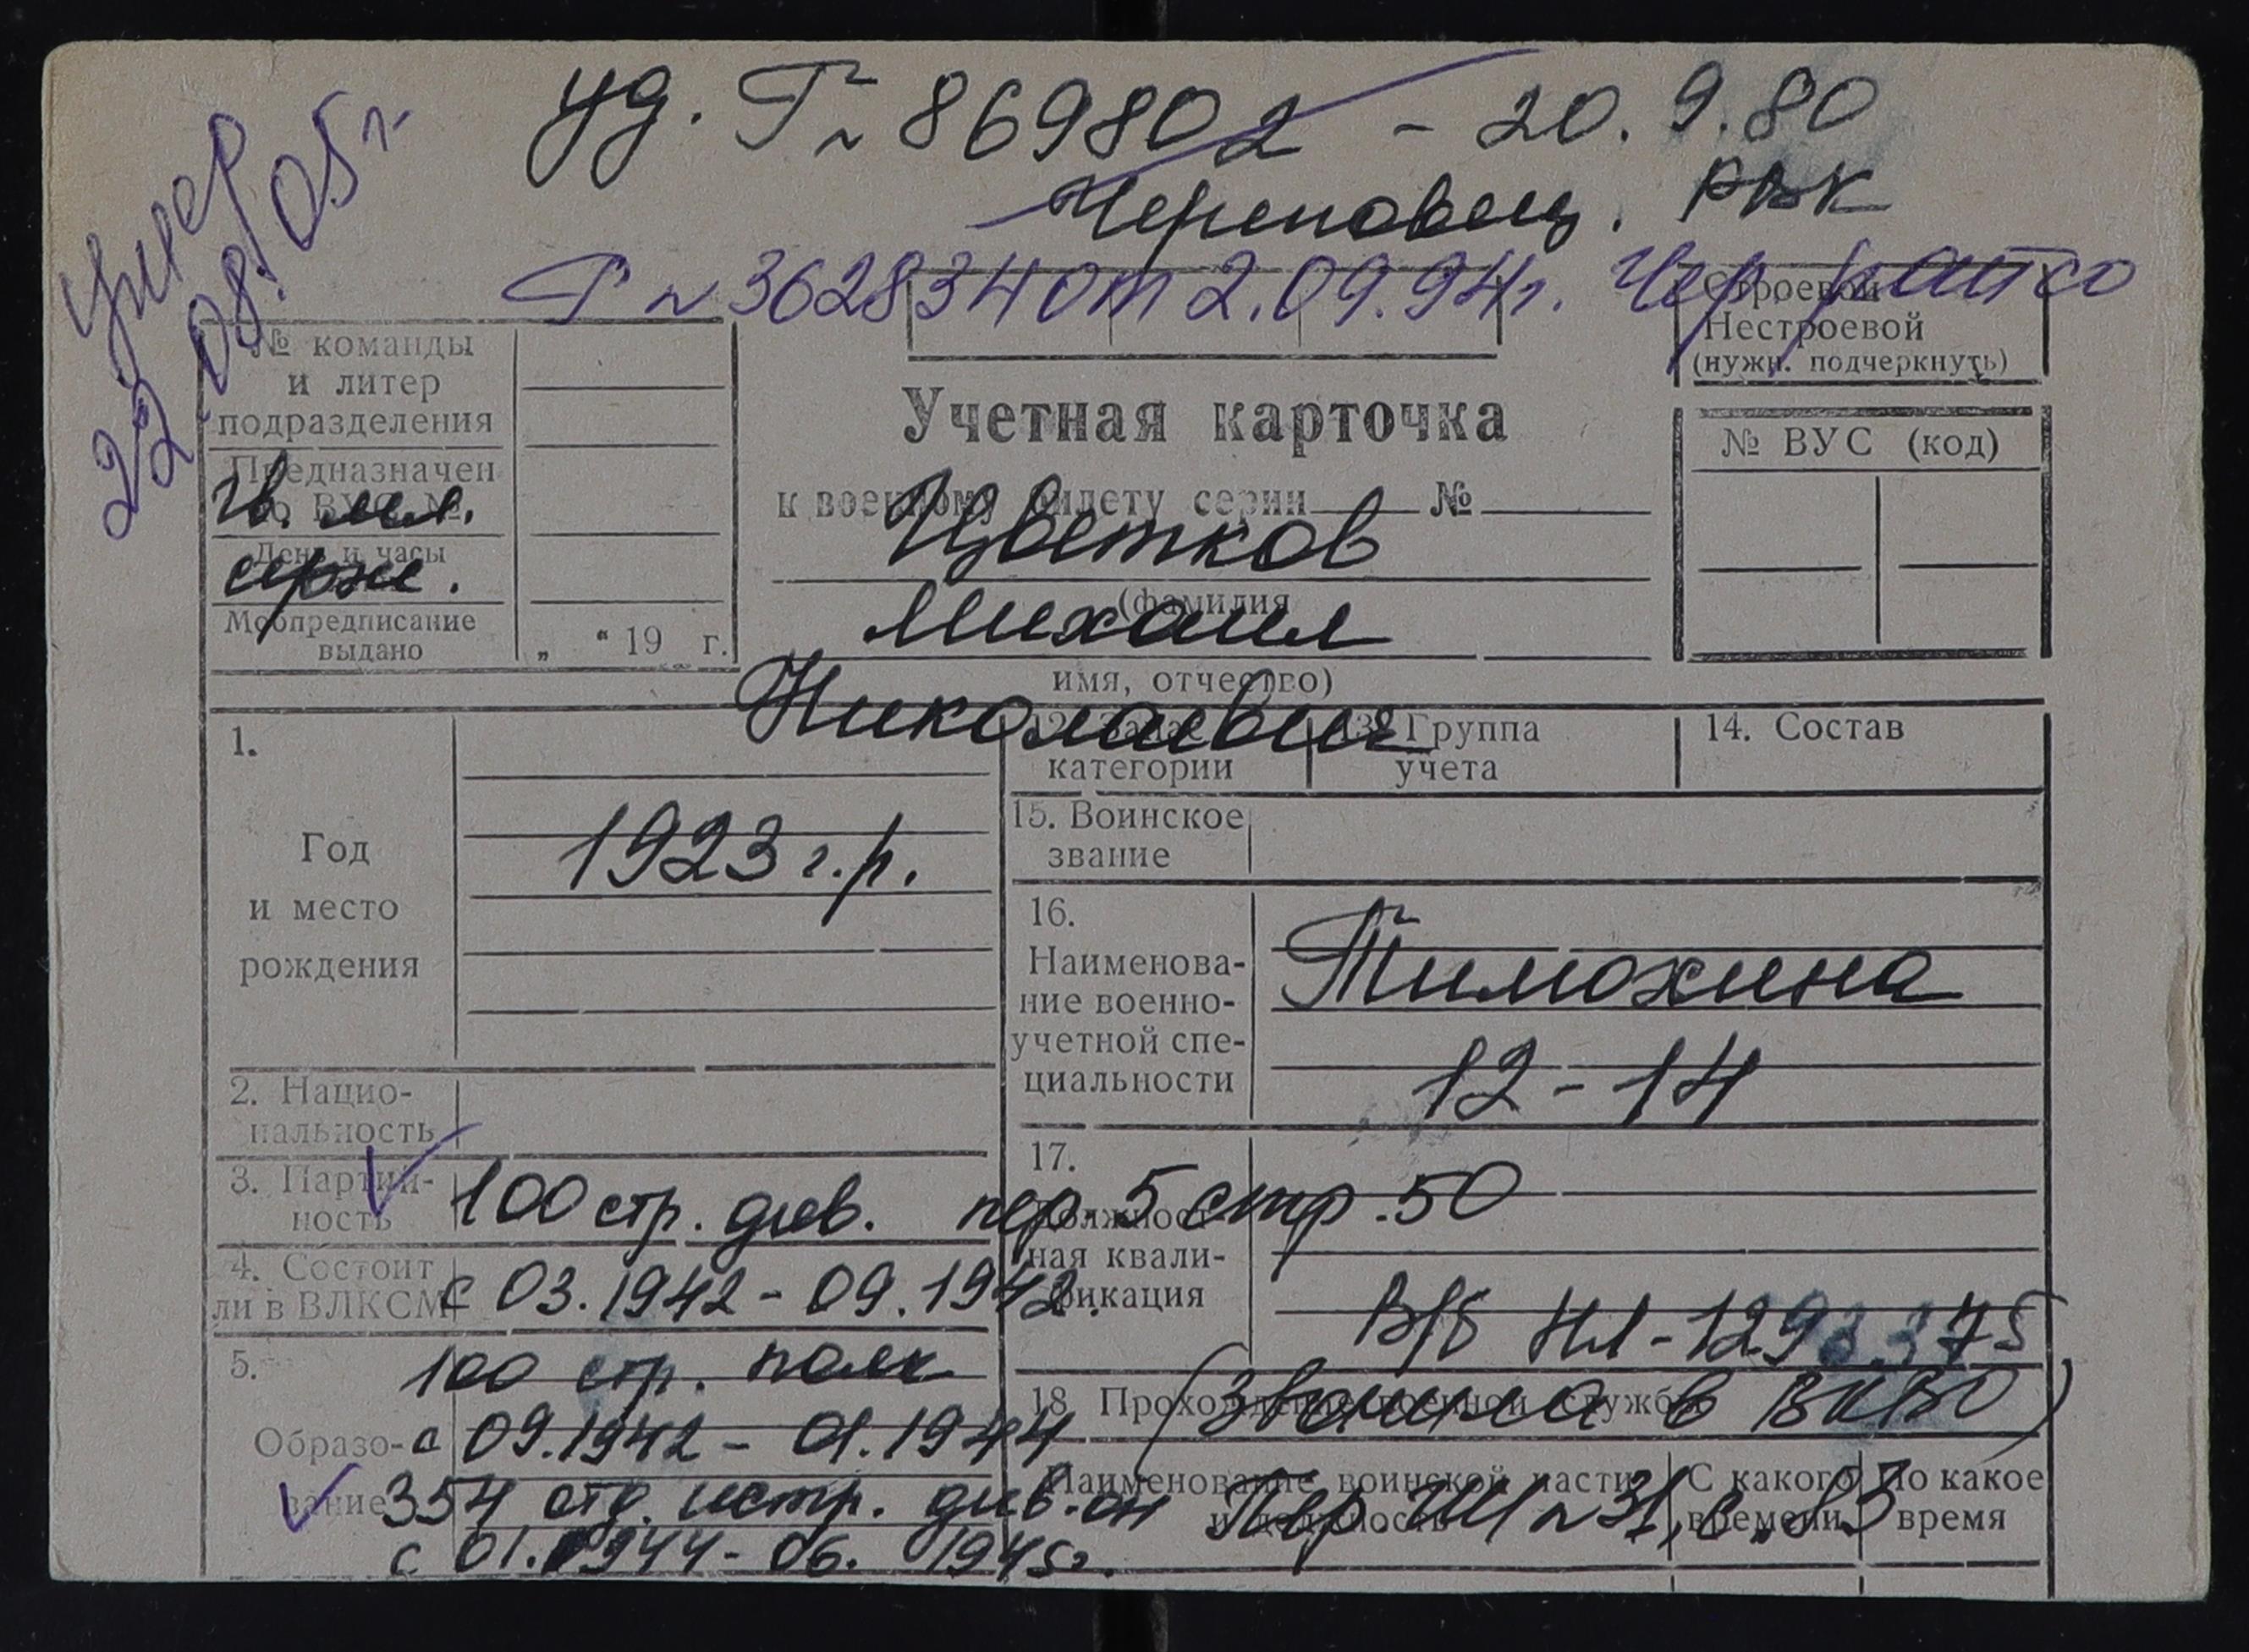 уд. Г № 869802 - 20.9.80
Череповец. РВК
Умер
22.08.05 г.
Г № 362834 от 2.09.94 г. Чер. райсо
Строевой
Нестроевой
(нужн. подчеркнуть)
№ команды
и литер
подразделения
Предназначен
по ВУС №
гв. мл.
День и часы
серж.
Мобпредписание
выдано
„ “ 19 г.
Учетная карточка
к военному билету серии № 
Цветков
(фамилия
Михаил
имя, отчество)
Николаевич
№ ВУС (код)
1.
Год
и место
рождения
1923 г.р.
категории
13. Группа
учета
14. Состав
15. Воинское
звание
16.
Наименова-
ние военно-
учетной спе-
циальности
Тимохина
12-14
2. Нацио-
нальность
3. Партий-
ность
100 стр. див. пер. 5 стр. 50
17.
Должност-
ная квали-
фикация
4. Состоит
ли в ВЛКСМ
с 03.1942 - 09.1942.
В/б НЛ-1293375
5.
Образо-
вание
100 стр. полк
с 09.1942 - 01.1944
354 отд. истр. див-он
с 01.1944 - 06. 1945 г.
18. Прохождение военной службы
Наименование воинской части
и должность
С какого
времени
По какое
время
Пер. №31, с.